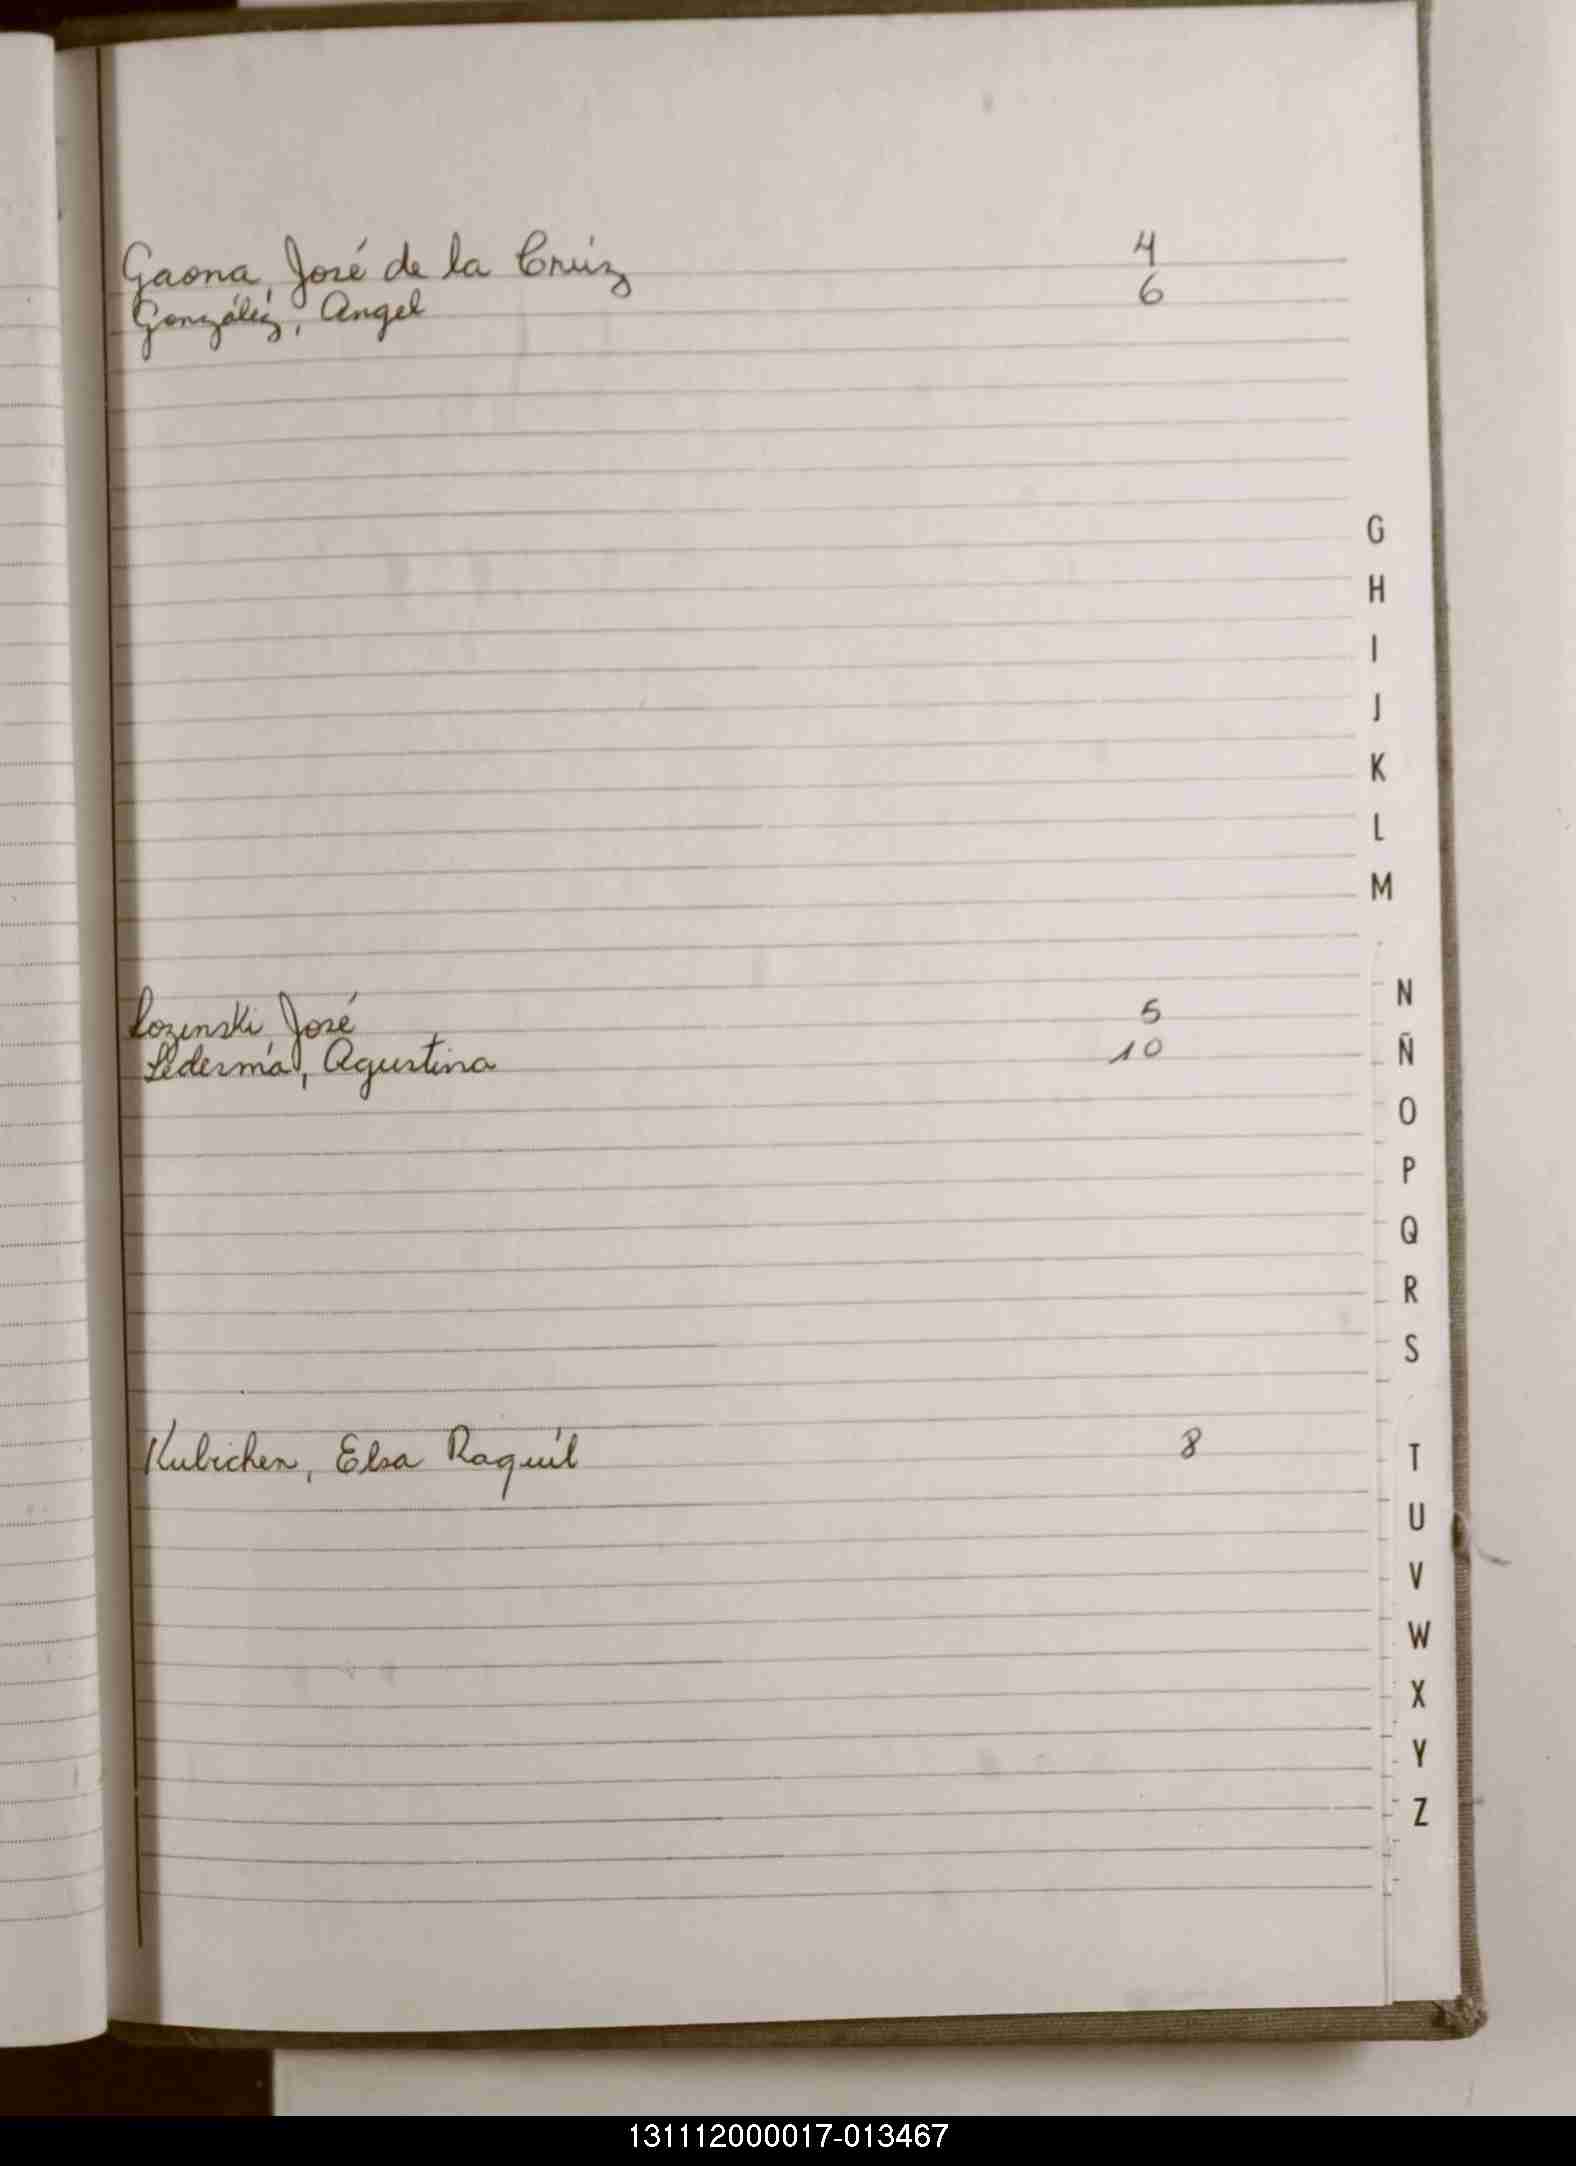 Gaona, José de la Crúz 4
Gonzáléz, Angel 6
G
H
I
J
K
L
M
Lozinski José 5
N
Ledermá, Agustina 10
Ñ
O
P
Q
R
S
Kubichen, Elsa Raquél 8
T
U
V
W
X
Y
Z
131112000017-013467